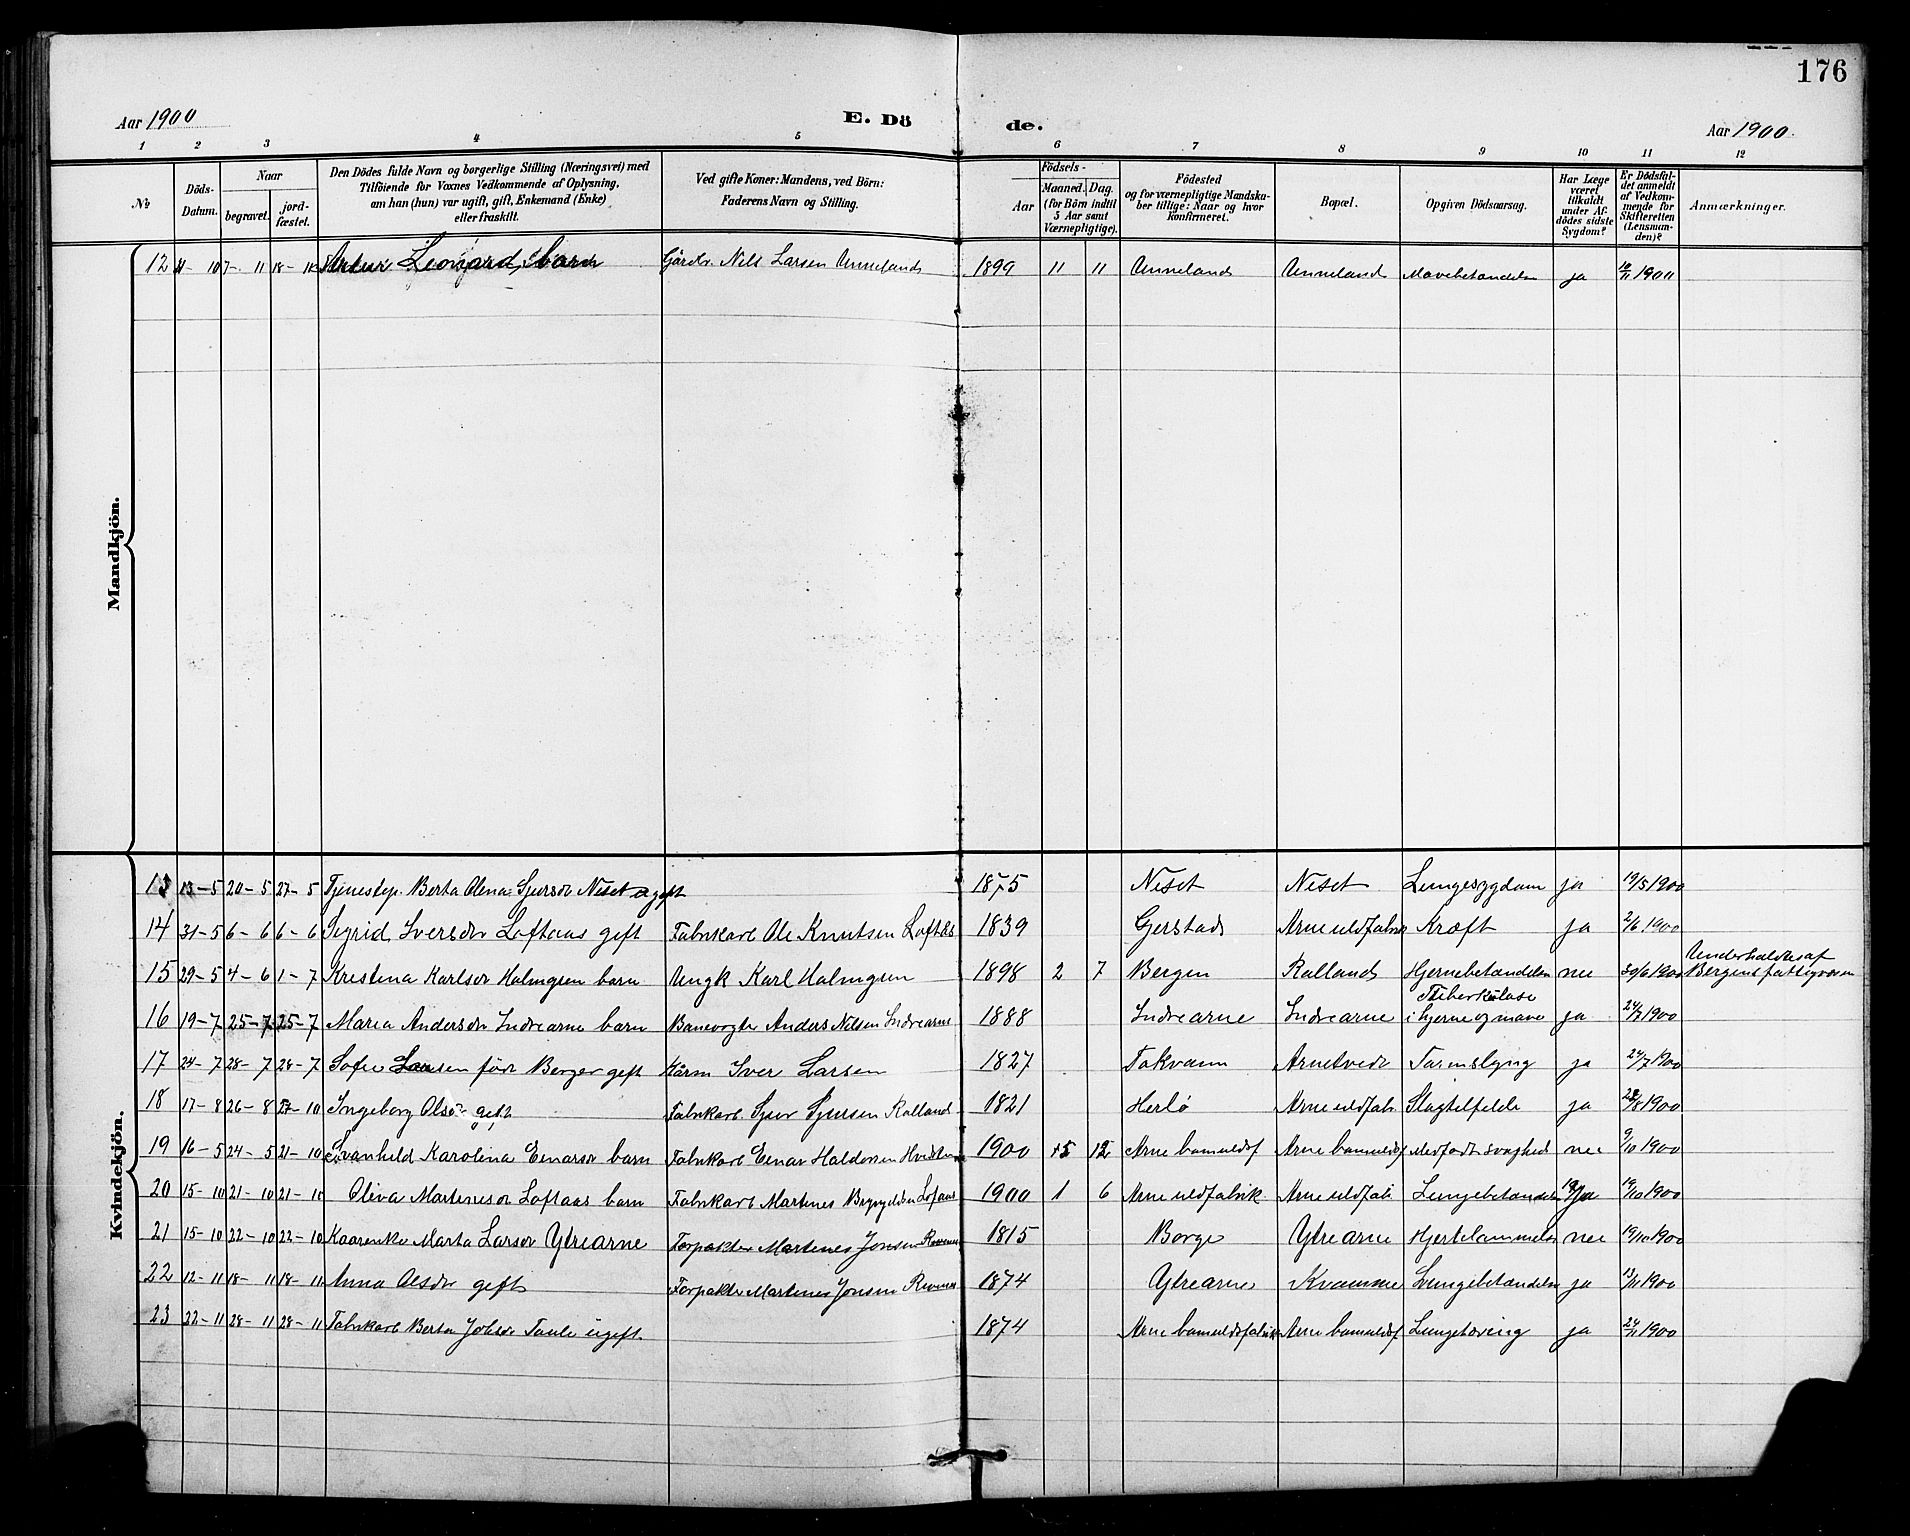 176
Aar 1900
E. Dö de.
Aar 1900.
1 2 3 4 5 6 7 8 9 10 11 12
№
Döds-Datum.
Naar
begravet.
jord-fæstet.
Den Dödes fulde Navn og borgerlige Stilling (Næringsvei) med
Tilföiende for Voxnes Vedkommende af Oplysning,
om han (hun) var ugift, gift, Enkemand (Enke)
eller fraskilt.
Ved gifte Koner: Mandens, ved Börn:
Faderens Navn og Stilling.
Födsels-
Aar
Maaned. Dag.
(for Börn indtil
5 Aar samt
Værnepligtige).
Födested
og for værnepligtige Mandska-
ber tillige: Naar og hvor
konfirmeret.
Bopæl.
Opgiven Dödsaarsag.
Har Læge
været
tilkaldt
under Af-
dödes sidste
Sygdom?
Er Dödsfal-
det anmeldt
af Vedkom-
mende for
Skifteretten
(Lensman-
den)?
Anmærkninger.
Mandkjön.
12 10 7- 11 18- 11 Artur Leonard, barn Gårdbr. Nils Larsen Unneland 1899 11 11 Unneland Unneland Mavebetændelse ja 1900
Kvindekjön.
13 13-5 20-5 27-5 Tjenestep. Berta Olena Sjursdr Neset ugift 1875 Neset Neset Lungesygdom ja 19/5 1900
14 31-5 6-6 6-6 Sigrid Iversdr Loftaas gift Fabrikarb Ole Knutsen Loftås 1839 Gjerstad Arne uldfabrik Kræft ja 2/6 1900
15 29-5 4-6 1-7 Kristina Karlsdr Holmgren barn Ungk Karl Holmgren 1898 2 7 Bergen Ralland Hjernebetændelse nei 30/6 1900 Underholdtes af Bergens fattigvæsen
16 19-7 25-7 25-7 Maria Andersdr Indrearne barn Banevogter Anders Nilsen Indrearne 1888 Indrearne Indrearne Tuberkulose i hjerne og mave ja 24/7 1900
17 24-7 28-7 28-7 Sofie Larsen født Berger gift Kårm Iver Larsen 1827 Takvam Arnetvedt Tarmslyng ja 27/7 1900
18 17-8 26-8 27-10 Ingeborg Olsdr gift Fabrikarb. Sjur Sjursen Ralland 1821 Herlø Arne uldfabr Slagtilfelde ja 22/8 1900
19 16-5 24-5 21-10 Svanhild Karolina Einarsdr barn Fabrikarb Einar Haldorsen 1900 5 12 Arne bomuldsf Arne bomuldsf Medfødt svaghed nei 9/10 1900
20 15-10 21-10 21-10 Oliva Martinesdr Loftaas barn Fabrikarb Martines Brynjelsen Loftaas 1900 1 6 Arne uldfabrik Arne uldfab Lungebetændelse ja 19/10 1900
21 15-10 22-10 22-10 Kaarenke Marta Larsdr Ytrearne Forpakter Martines Jonsen 1815 Borge Ytrearne Hjertelammelse nei 19/10 1900
22 12-11 18-11 18-11 Anna Olsdr gift Forpakter Martines Jonsen 1874 Ytrearne Kvamme Lungebetændelse ja 13/11 1900
23 22-11 28-11 28-11 Fabrikarb Berta Johsdr Taule ugift. 1874 Arne bomuldsfabrik Arne bomuldsf Lungetæring ja 24/11 1900